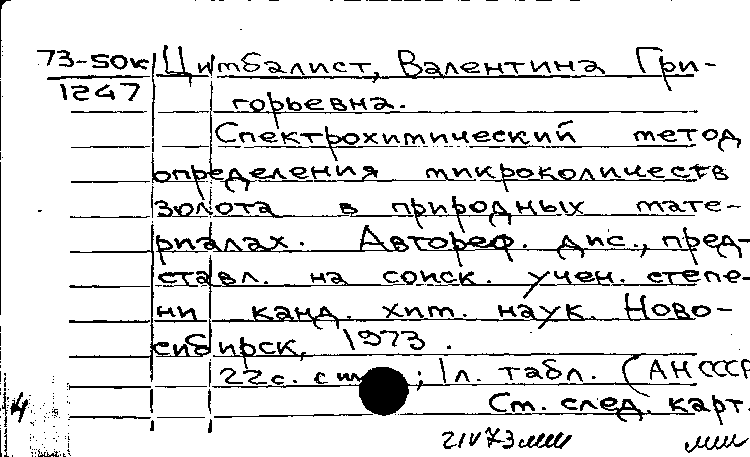 73-50к Цимбалист, Валентина Гри-
1247 горьевна.
Спектрохимический метод
определения микроколичеств
золота в природных мате-
риалах. Автореф. дис., пред-
ставл. на соиск. учен. степе-
ни канд. хим. наук. Ново-
сибирск, 1973.
22с. с ; 1л. табл. (АН СССР
См. след. карт.